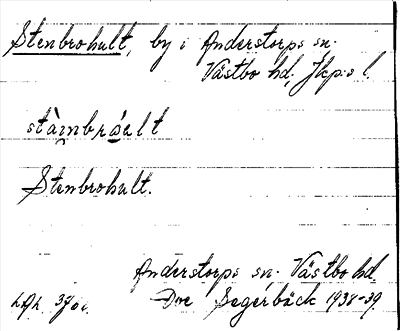 Stenbrohult, by i Anderstorps sn.
Västbo hd, Jkp:s l.
Stenbrohult.
Anderstorps sn. Västbo hd.
Segerbäck 1938-39.